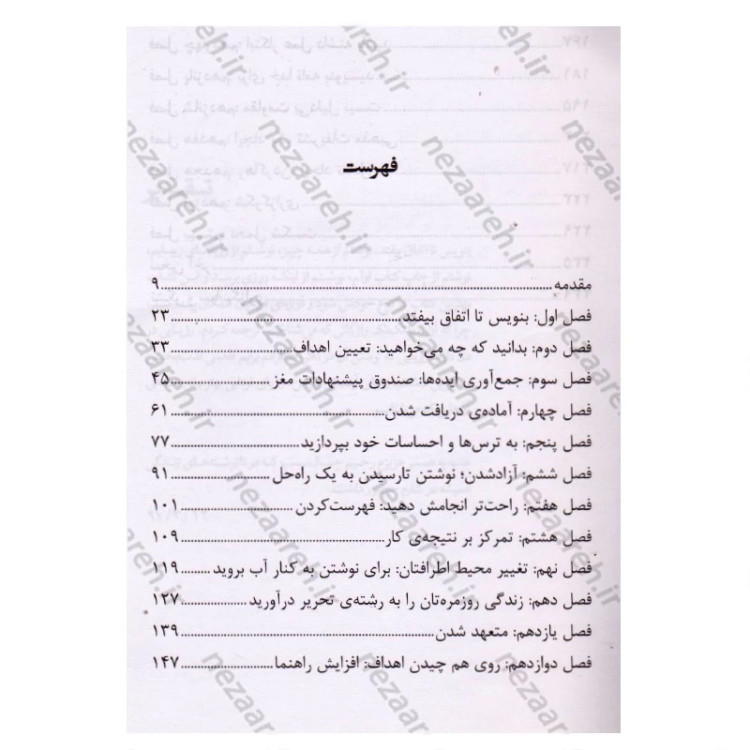 فهرست
مقدمه ... ۹
فصل اول: بنویس تا اتفاق بیفتد ... ۲۳
فصل دوم: بدانید که چه می‌خواهید: تعیین اهداف ... ۳۳
فصل سوم: جمع‌آوری ایده‌ها: صندوق پیشنهادات مغز ... ۴۵
فصل چهارم: آماده‌ی دریافت شدن ... ۶۱
فصل پنجم: به ترس‌ها و احساسات خود بپردازید ... ۷۷
فصل ششم: آزادشدن؛ نوشتن تارسیدن به یک راه‌حل ... ۹۱
فصل هفتم: راحت‌تر انجامش دهید: فهرست‌کردن ... ۱۰۱
فصل هشتم: تمرکز بر نتیجه‌ی کار ... ۱۰۹
فصل نهم: تغییر محیط اطرافتان: برای نوشتن به کنار آب بروید ... ۱۱۹
فصل دهم: زندگی روزمره‌تان را به رشته‌ی تحریر درآورید ... ۱۲۷
فصل یازدهم: متعهد شدن ... ۱۳۹
فصل دوازدهم: روی هم چیدن اهداف: افزایش راهنما ... ۱۴۷
nezaareh.ir